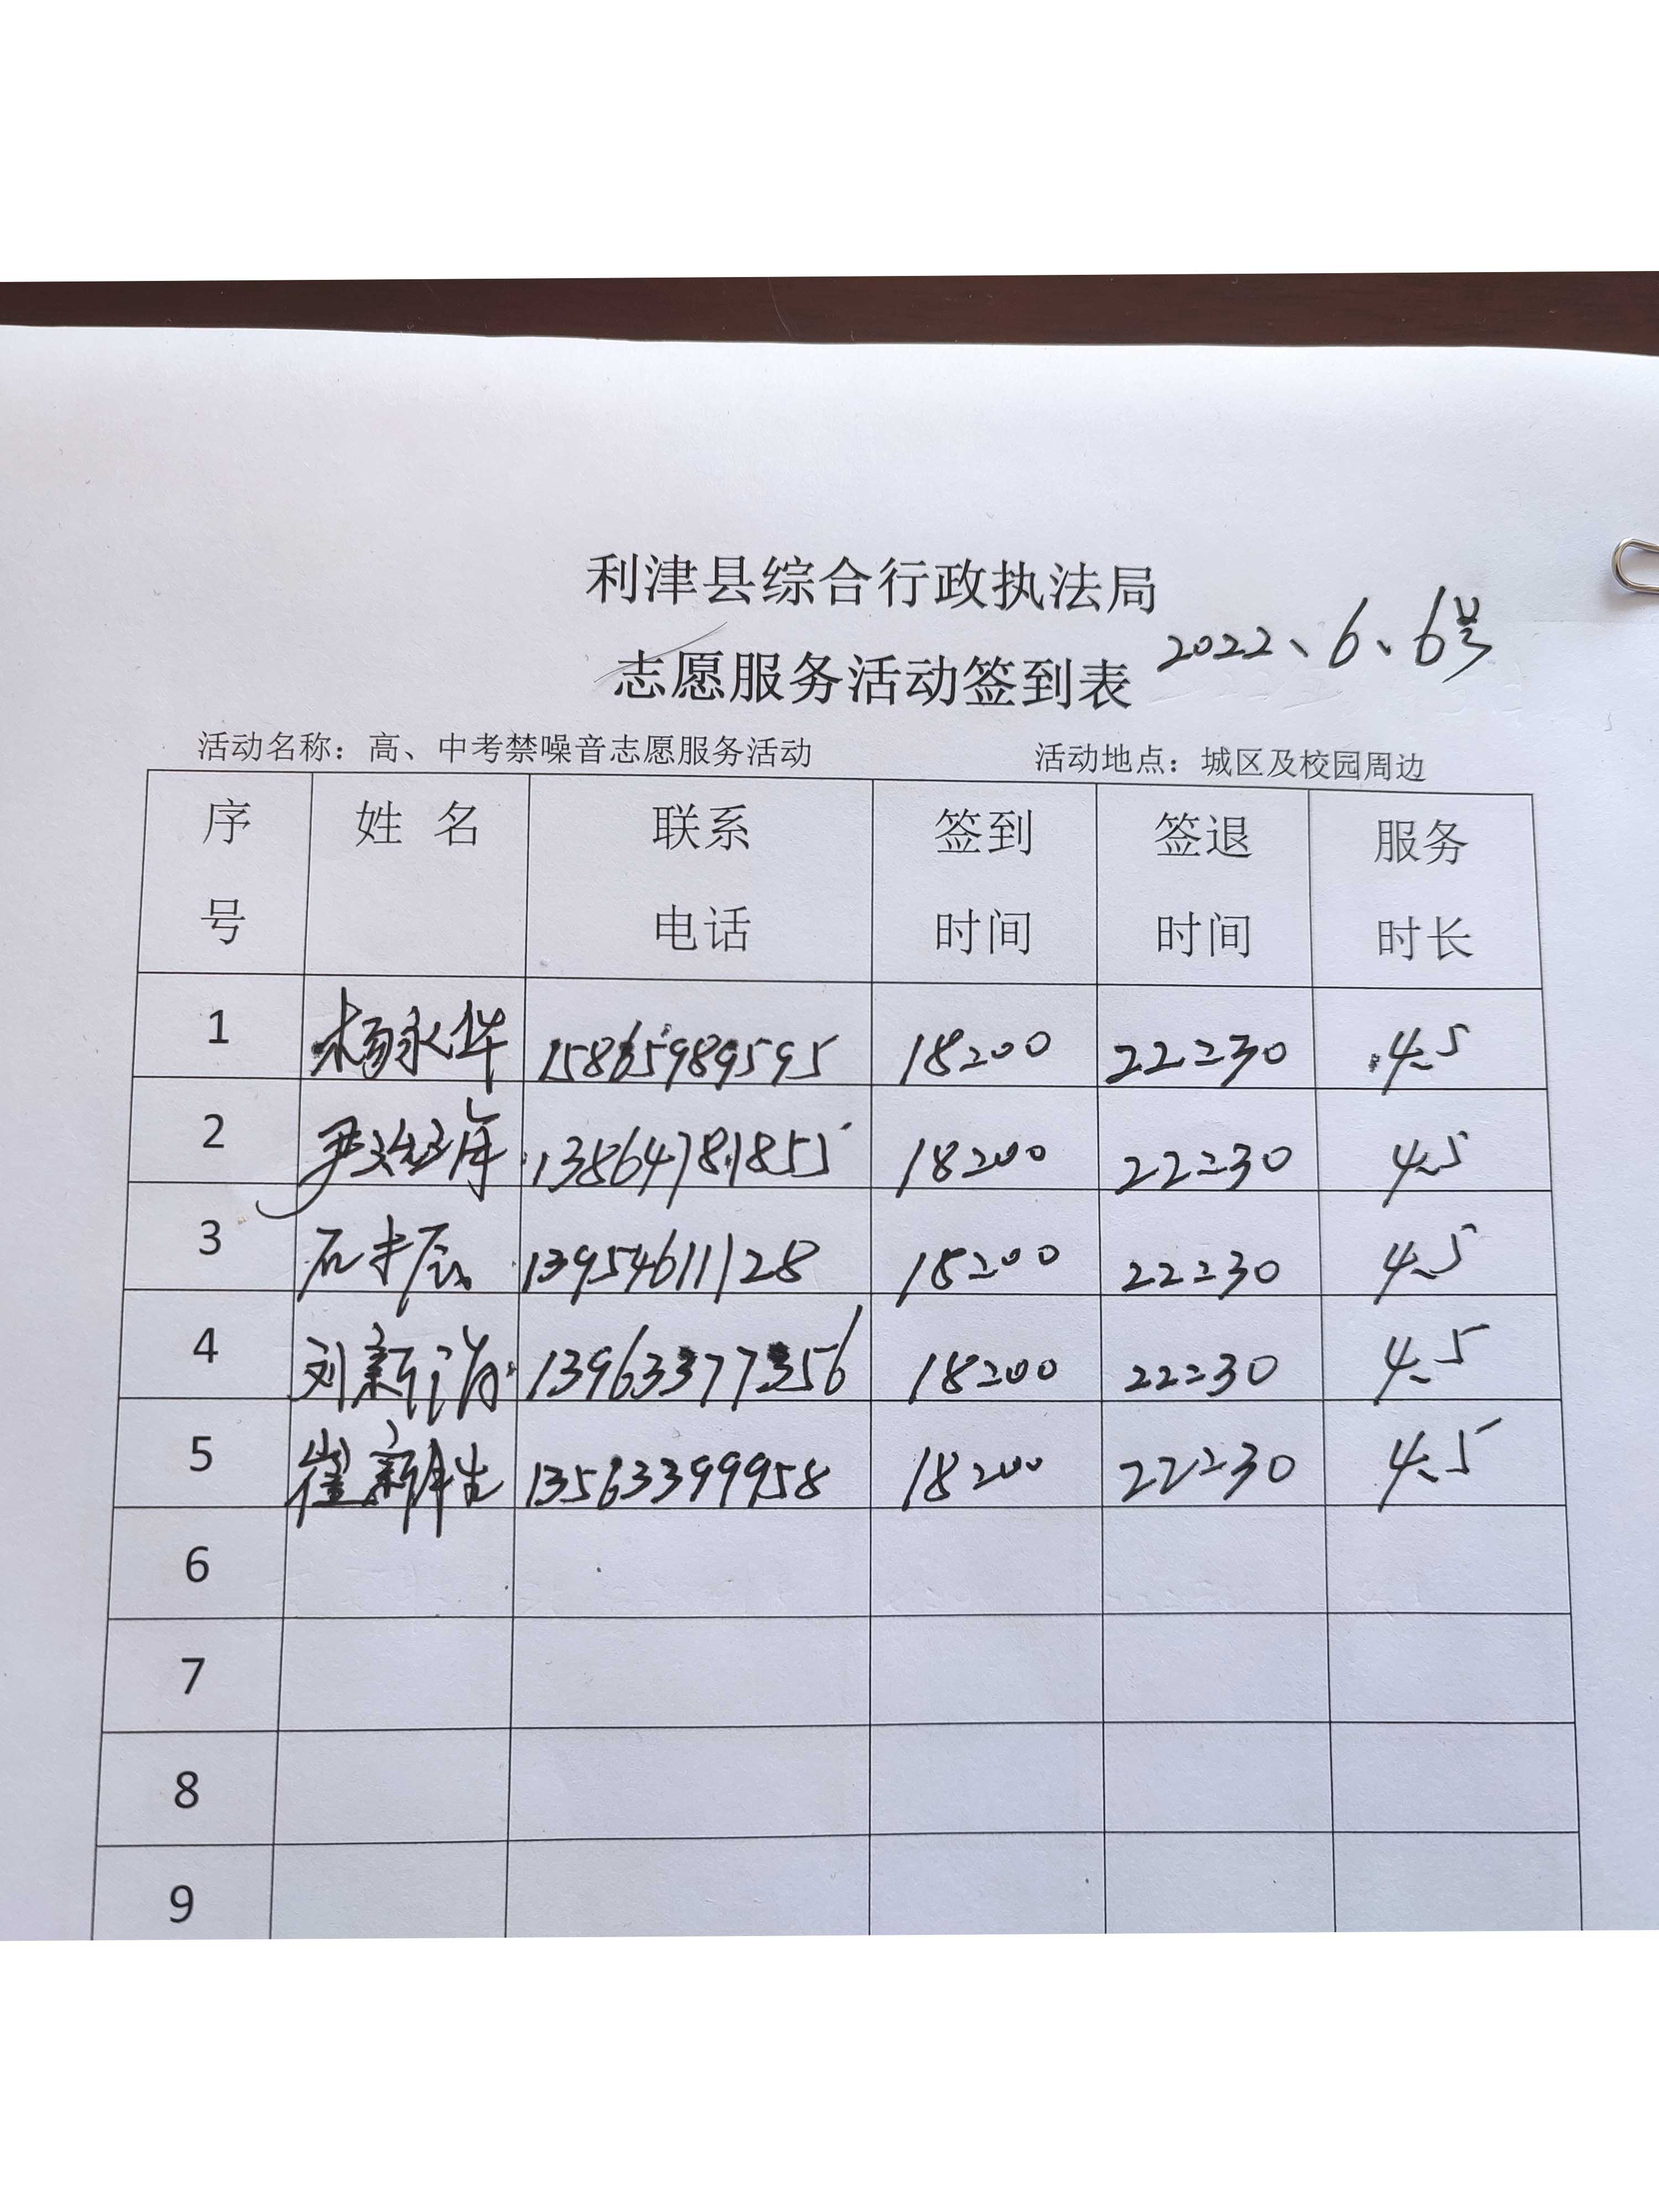 利津县综合行政执法局
志愿服务活动签到表 2022、6、6号
活动名称：高、中考禁噪音志愿服务活动 活动地点：城区及校园周边
序号 姓名 联系电话 签到时间 签退时间 服务时长
1 杨永华 15865989595 18:00 22:30 4.5
2 13864781855 18:00 22:30 4.5
3 石才辰 13954611128 18:00 22:30 4.5
4 刘新 13963377356 18:00 22:30 4.5
5 崔新生 13563399958 18:00 22:30 4.5
6
7
8
9